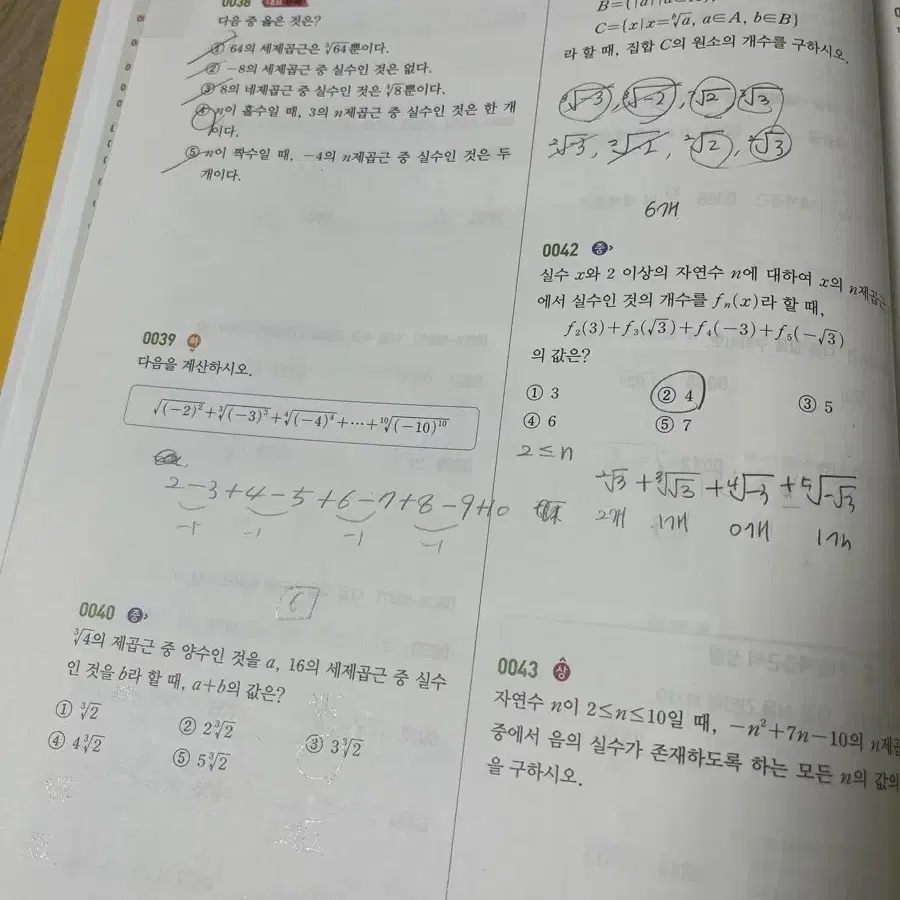 0038 대표문제
다음 중 옳은 것은?
① 64의 세제곱근은 ∛64뿐이다.
② −8의 세제곱근 중 실수인 것은 없다.
③ 8의 네제곱근 중 실수인 것은 ∜8뿐이다.
④ n이 홀수일 때, 3의 n제곱근 중 실수인 것은 한 개
이다.
⑤ n이 짝수일 때, −4의 n제곱근 중 실수인 것은 두
개이다.
0039 하
다음을 계산하시오.
√(−2)² + ∛(−3)³ + ∜(−4)⁴ + ⋯ + ¹⁰√(−10)¹⁰
2−3+4−5+6−7+8−9+10
−1 −1 −1 −1
6
0040 중
∛4의 제곱근 중 양수인 것을 a, 16의 세제곱근 중 실수
인 것을 b라 할 때, a+b의 값은?
① ∛2 ② 2∛2 ③ 3∛2
④ 4∛2 ⑤ 5∛2
C={x|x=ᵇ√a, a∈A, b∈B}
라 할 때, 집합 C의 원소의 개수를 구하시오.
³√−3, ³√−2, ³√2, ³√3
²√−3, ²√2, ²√3
6개
0042 중
실수 x와 2 이상의 자연수 n에 대하여 x의 n제곱근
에서 실수인 것의 개수를 fₙ(x)라 할 때,
f₂(3)+f₃(√3)+f₄(−3)+f₅(−√3)
의 값은?
① 3 ② 4 ③ 5
④ 6 ⑤ 7
2≤n
²√3 + ³√√3 + ⁴√−3 + ⁵√−√3
2개 1개 0개 1개
0043 상
자연수 n이 2≤n≤10일 때, −n²+7n−10의 n제곱
중에서 음의 실수가 존재하도록 하는 모든 n의 값의
을 구하시오.